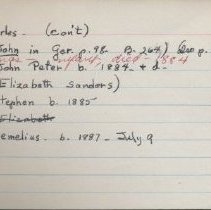 rles. (con't)
John in Ger. p. 98. B. 264) Geo p.
died - 1884
John Peter b. 1884 - + d -
Elizabeth Sanders)
tephen b. 1885
Elizabeth
emelius - b. 1887 - July 9